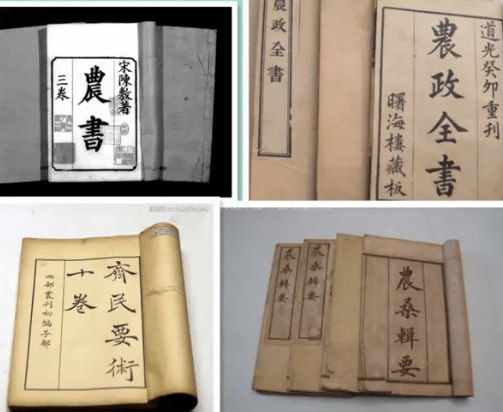 宋陳敷著
農書
三卷
農政全書
道光癸卯重刊
農政全書
曙海樓藏板
齊民要術
十卷
四部叢刊初編子部
農桑輯要
農桑輯要
農桑輯要